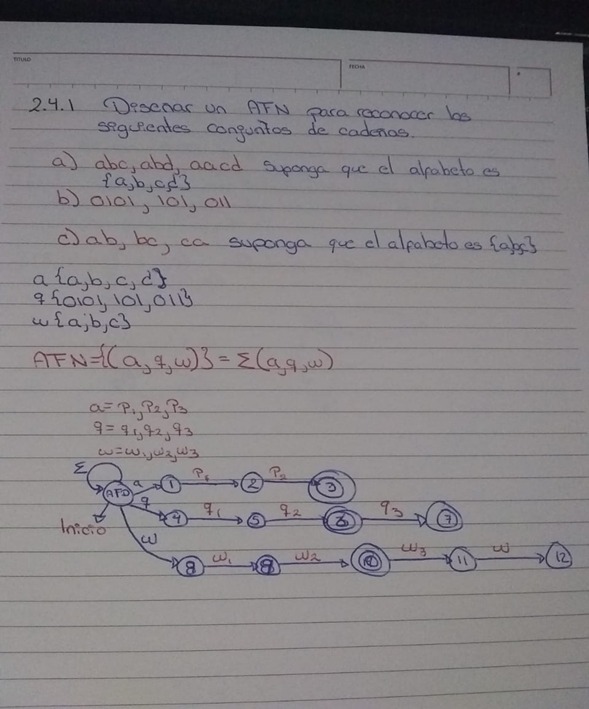 TITULO
FECHA
2.4.1 Diseñar un AFN para reconocer los
seguientes conguntos de cadenas.
a) abc, abd, aacd suponga que el alfabeto es
{a,b,c,d}
b) 0101, 101, 011
c) ab, bc, ca suponga que el alfabeto es {a,b,c}
a {a,b,c,d}
q {0101, 101, 011}
w {a,b,c}
AFN={(a,q,w)} = Σ(a,q,w)
a = P1, P2, P3
q = q1, q2, q3
w = w1, w2, w3
Σ
AFD a 1 P1 2 P2 3
q 4 q1 5 q2 6 q3 7
Inicio
w 8 w1 9 w2 10 w3 11 w 12